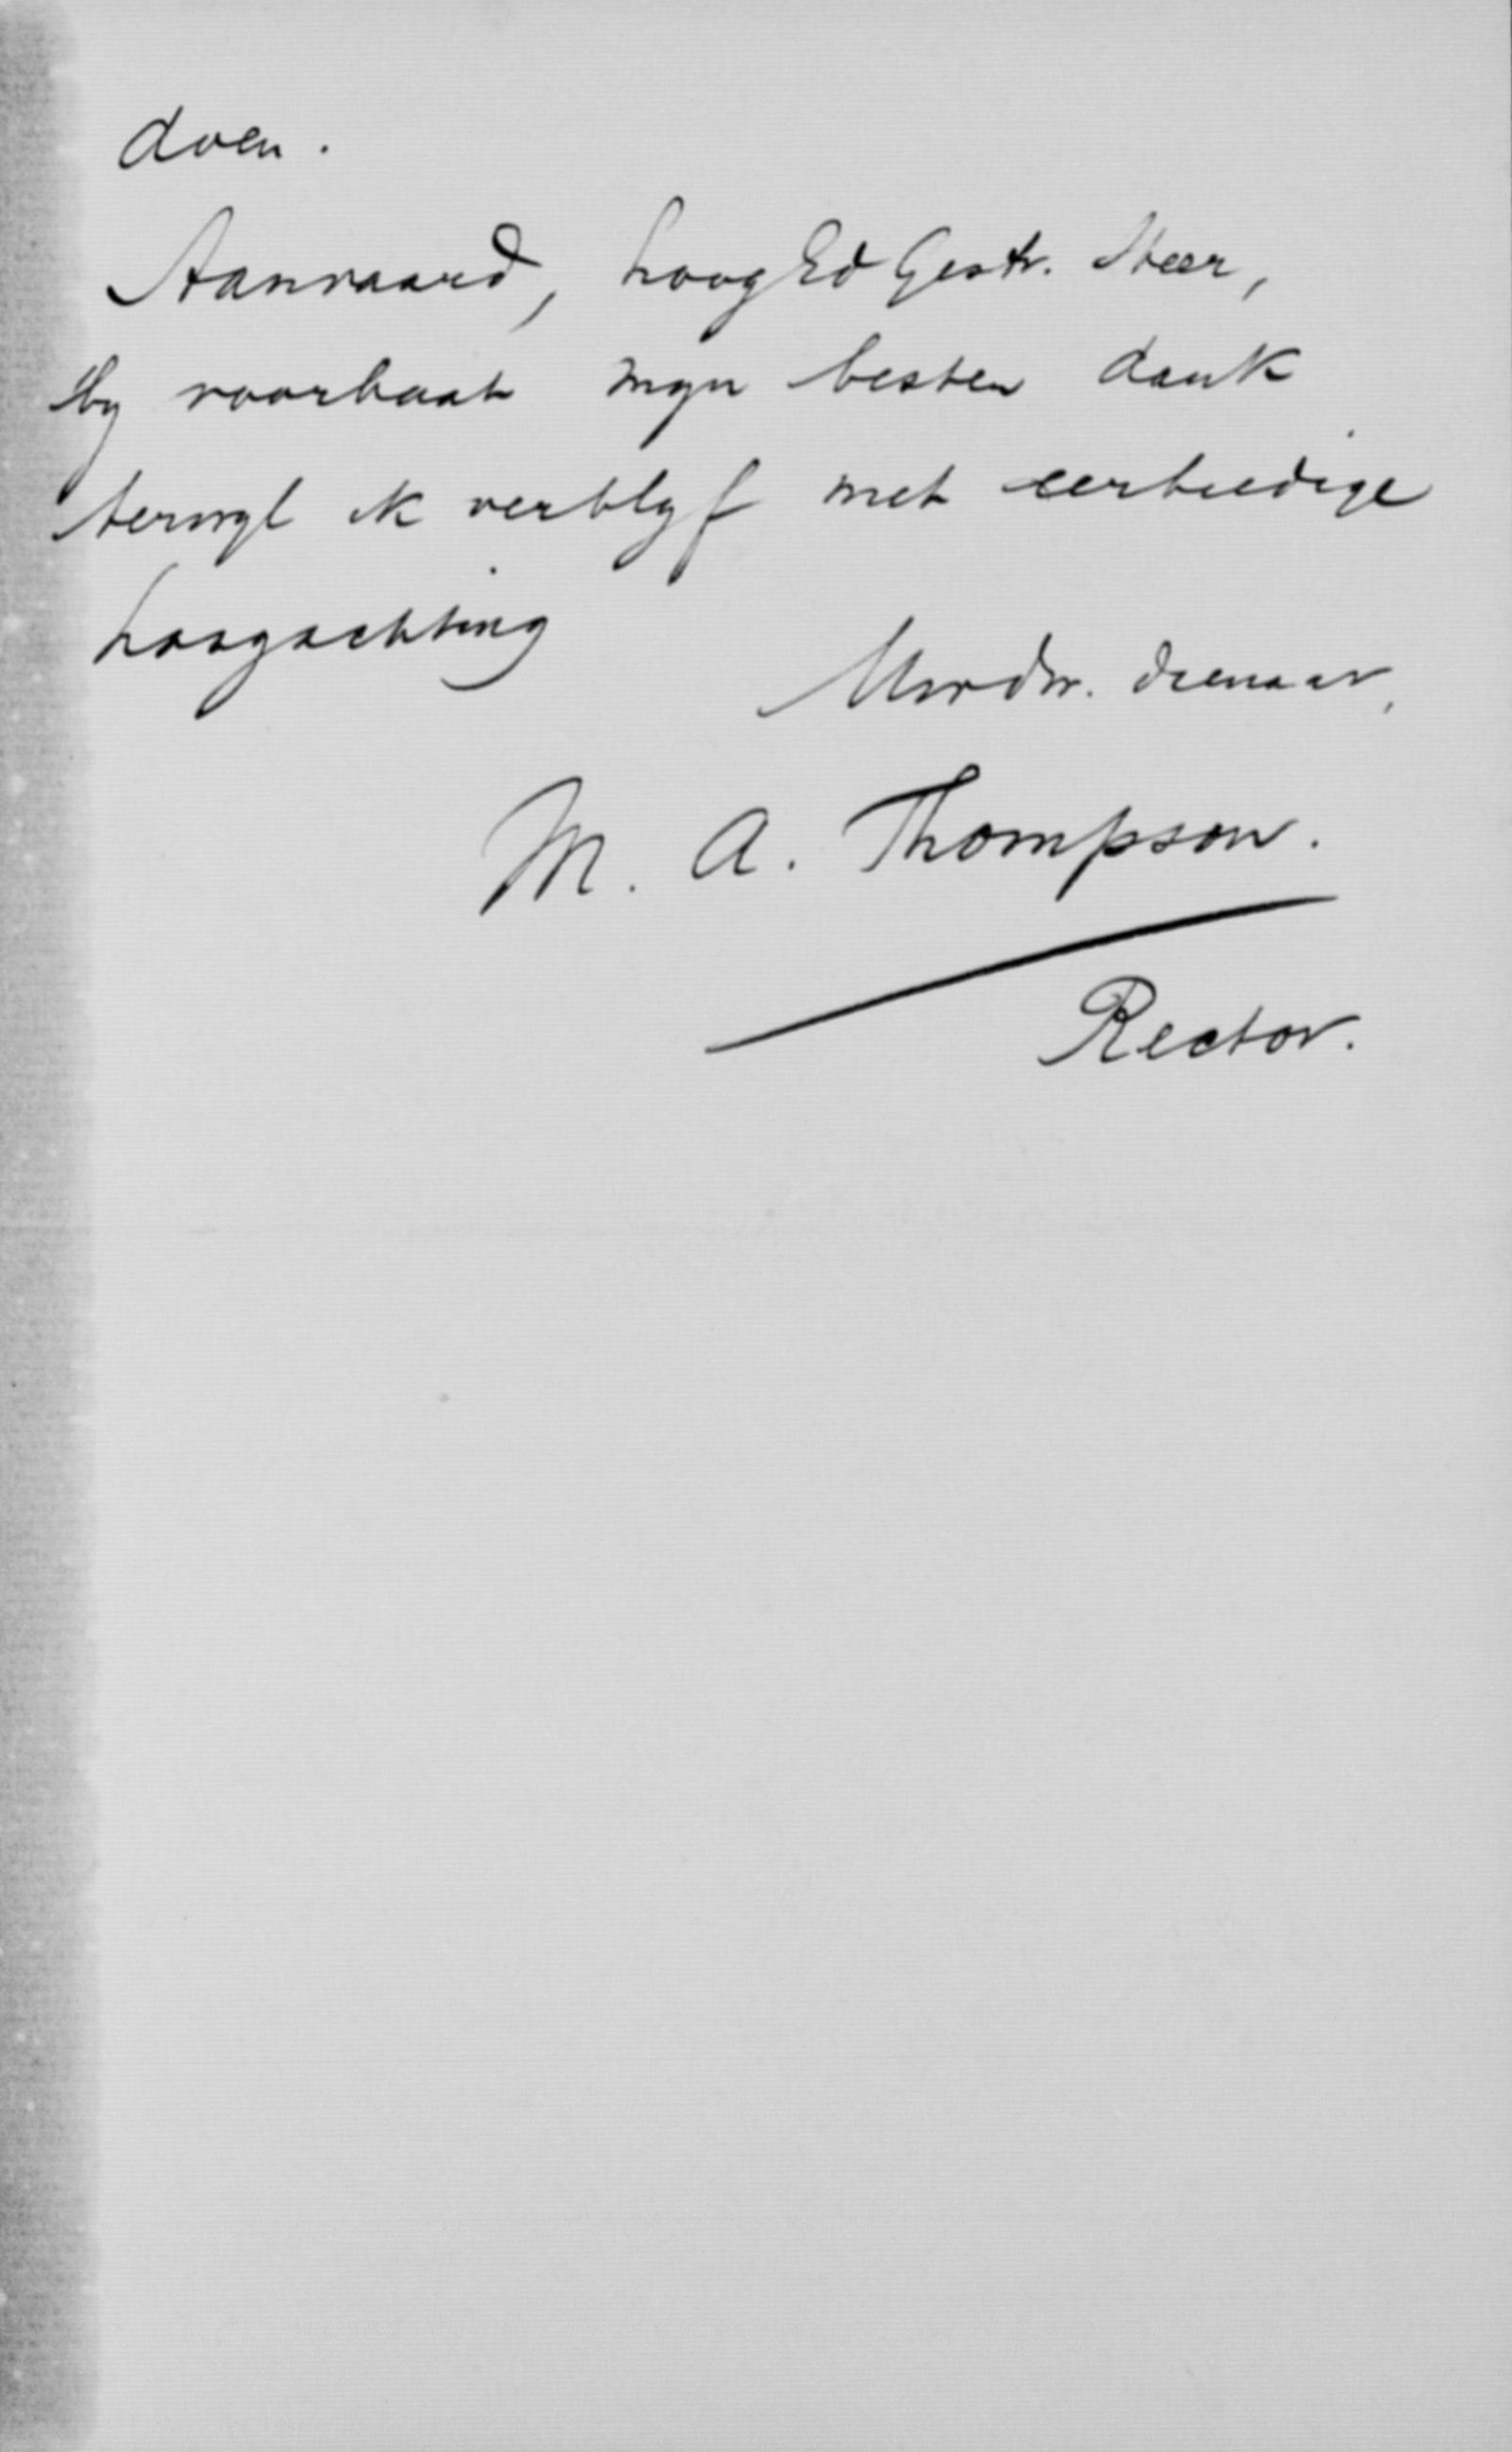 doen.
Aanvaard, hoogEdGestr. Heer,
by voorbaat myn besten dank
terwyl ik verblyf met eerbiedige
hoogachting
Uwdw. dienaar,
M. A. Thompson.
Rector.